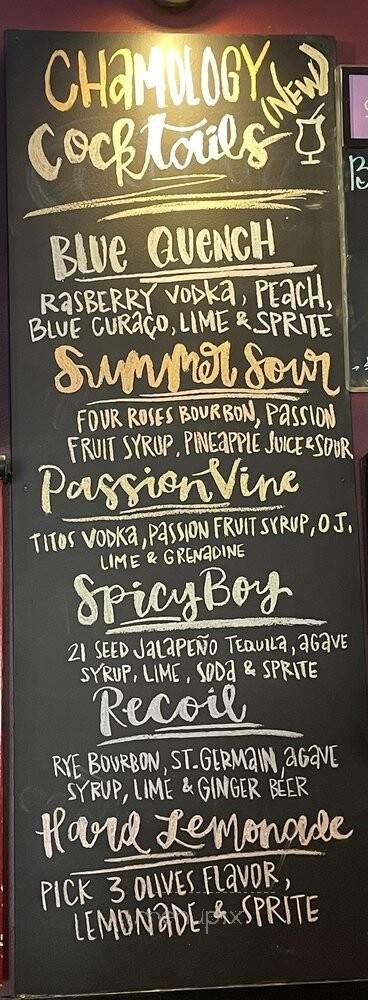 CHaMOLOGY
(NEW)
Cocktails
BLUE QUENCH
RASBERRY VODKA, PEACH,
BLUE CURAÇO, LIME & SPRITE
Summer Sour
FOUR ROSES BOURBON, PASSION
FRUIT SYRUP, PINEAPPLE JUICE & SOUR
PassionVine
TITOS VODKA, PASSION FRUIT SYRUP, O J.
LIME & GRENADINE
SpicyBoy
21 SEED JALAPEÑO TEQUILA, AGAVE
SYRUP, LIME, SODA & SPRITE
Recoil
RYE BOURBON, ST. GERMAIN, AGAVE
SYRUP, LIME & GINGER BEER
Hard Lemonade
PICK 3 OLIVES FLAVOR,
LEMONADE & SPRITE